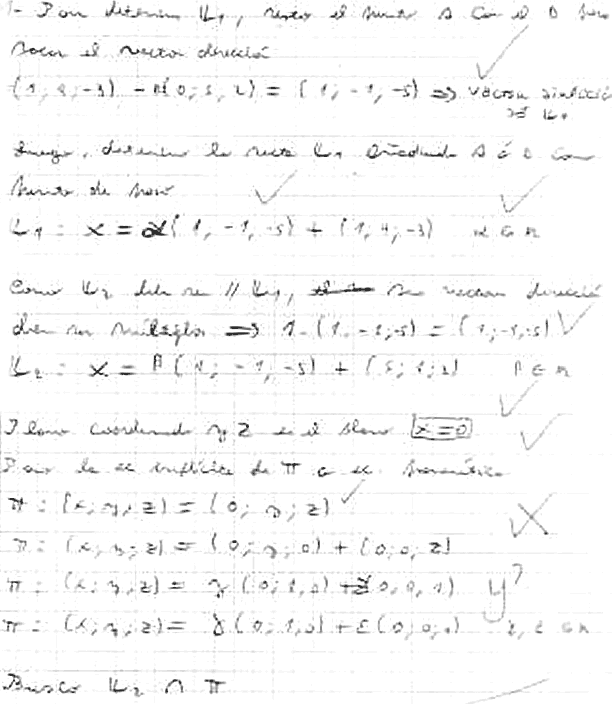 1- Para determinar L1, resto el punto A con el D para
sacar el vector dirección
(1; 4; -3) - (0; 5; 2) = (1; -1; -5) => vector dirección
de L1
Luego, determino la recta L1 A ó D como
punto de paso
L1 : X = α(1; -1; -5) + (1; 4; -3) α ∈ R
Como L2 debe ser // L1, su vector dirección
deben ser múltiplos => 1·(1; -1; -5) = (1; -1; -5)
L2 : X = β(1; -1; -5) + (5; 1; 2) β ∈ R
Plano coordenado yz es el plano x=0
Paso la ec implícita de π a ec. paramétrica
π : (x; y; z) = (0; y; z)
π : (x; y; z) = (0; y; 0) + (0; 0; z)
π : (x; y; z) = y(0; 1; 0) + z(0; 0; 1) y?
π : (x; y; z) = γ(0; 1; 0) + ε(0; 0; 1) γ, ε ∈ R
Busco L2 ∩ π